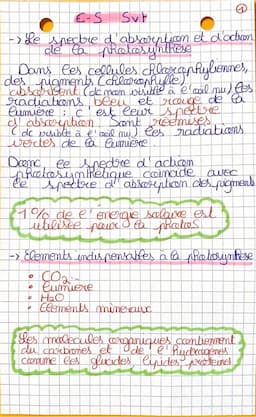 E-S SVT
①
-> Le spectre d'absorption et d'action
de la photosynthèse
Dans les cellules chlorophyliennes,
des pigments (chlorophylle)
absorbent (de mon visible à l'œil nu) les
radiations bleu et rouge de la
lumière : c'est leur spectre
d'absorption. Sont réémises
(de visible à l'œil nu) les radiations
vertes de la lumière
Donc, le spectre d'action
photosynthétique coincide avec
le spectre d'absorption des pigments
1% de l'énergie solaire est
utilisée pour la photos
-> Elements indispensables à la photosynthèse
• CO2
• Lumière
• H2O
• Elements mineraux
Les molécules organiques contiennent
du carbones et de l'hydrogènes
comme les glucides, lipides, protéines